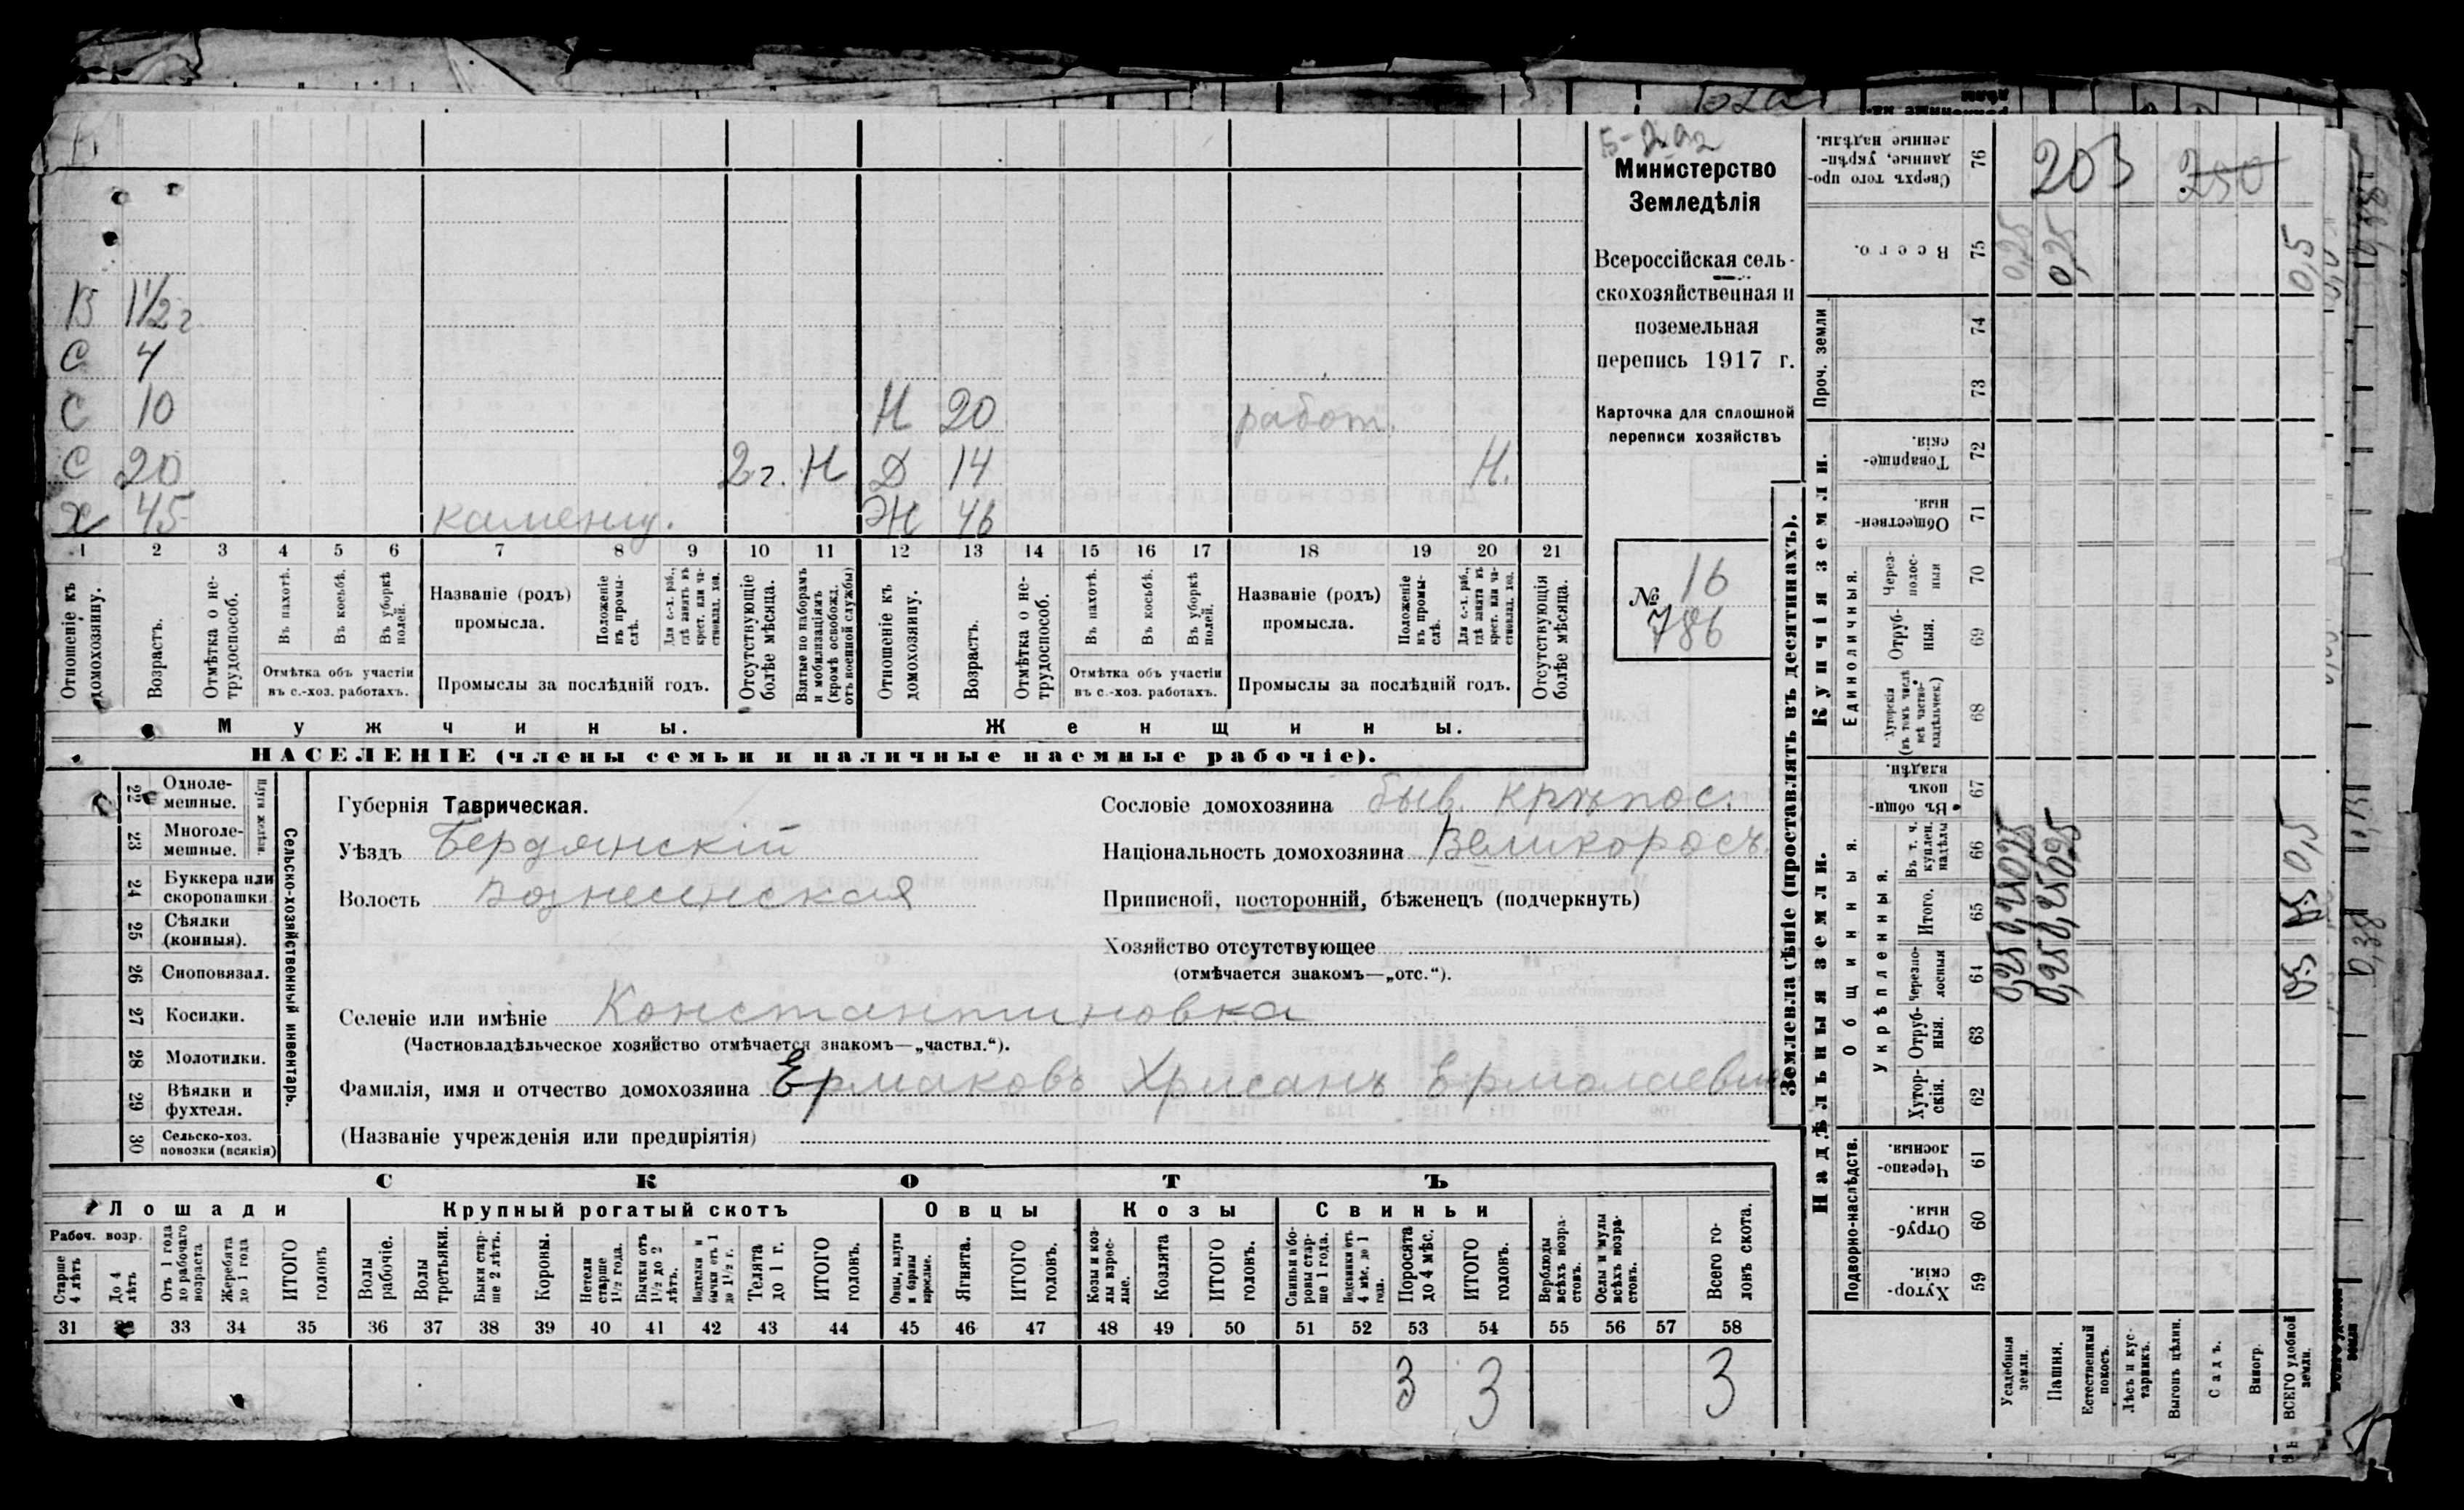 Б-
Министерство
Земледѣлія
Всероссійская сель-
скохозяйственная и
поземельная
перепись 1917 г.
Карточка для сплошной
переписи хозяйствъ
№ 16
786
В 1½ г
С 4
С 10 Н 20 работ.
С 20 2 г. Н Д 14 Н.
Х 45 каменщ. Ж 46
1 2 3 4 5 6 7 8 9 10 11 12 13 14 15 16 17 18 19 20 21
Отношеніе къ домохозяину.
Возрастъ.
Отмѣтка о не-трудоспособ.
Въ пахотѣ.
Въ косьбѣ.
Въ уборкѣ полей.
Отмѣтка объ участіи
въ с.-хоз. работахъ.
Названіе (родъ)
промысла.
Положеніе въ промы-слѣ.
Для с.-х. раб., гдѣ занятъ въ крест. или ча-стновлад. хоз.
Промыслы за послѣдній годъ.
Отсутствующіе болѣе мѣсяца.
Взятые по наборамъ и мобилизаціямъ (кромѣ освобожд. отъ военной службы)
Отношеніе къ домохозяину.
Возрастъ.
Отмѣтка о не-трудоспособ.
Въ пахотѣ.
Въ косьбѣ.
Въ уборкѣ полей.
Отмѣтка объ участіи
въ с.-хоз. работахъ.
Названіе (родъ)
промысла.
Положеніе въ промы-слѣ.
Для с.-х. раб., гдѣ занята въ крест. или ча-стновлад. хоз.
Промыслы за послѣдній годъ.
Отсутствующія болѣе мѣсяца.
Мужчины. Женщины.
НАСЕЛЕНІЕ (члены семьи и наличные наемные рабочіе).
Сельско-хозяйственный инвентарь.
Плуги желѣзн.
22 Одноле-мешные.
23 Многоле-мешные.
24 Буккера или скоропашки
25 Сѣялки (конныя).
26 Сноповязал.
27 Косилки.
28 Молотилки.
29 Вѣялки и фухтеля.
30 Сельско-хоз. повозки (всякія)
Губернія Таврическая.
Уѣздъ Бердянскій
Волость Вознесенская
Сословіе домохозяина быв. крѣпос.
Національность домохозяина Великоросъ.
Приписной, посторонній, бѣженецъ (подчеркнуть)
Хозяйство отсутствующее
(отмѣчается знакомъ—„отс.“).
Селеніе или имѣніе Константиновка
(Частновладѣльческое хозяйство отмѣчается знакомъ—„частвл.“).
Фамилія, имя и отчество домохозяина Ермаковъ Хрисанъ Ермолаевич
(Названіе учрежденія или предпріятія)
СКОТЪ
Лошади Крупный рогатый скотъ Овцы Козы Свиньи
Рабоч. возр.
Старше 4 лѣтъ
До 4 лѣтъ
Отъ 1 года до рабочаго возраста
Жеребята до 1 года
ИТОГО головъ
Волы рабочіе.
Волы третьяки.
Быки стар-ше 2 лѣтъ.
Коровы.
Нетели старше 1½ года.
Бычки отъ 1½ до 2 лѣтъ.
Подтелки и бычки отъ 1 до 1½ г.
Телята до 1 г.
ИТОГО головъ.
Овцы, валухи и бараны взрослые.
Ягнята.
ИТОГО головъ.
Козы и коз-лы взрос-лые.
Козлята
ИТОГО головъ.
Свиньи и бо-ровы стар-ше 1 года.
Подсвинки отъ 4 мѣс. до 1 года.
Поросята до 4 мѣс.
ИТОГО головъ.
Верблюды всѣхъ возра-стовъ.
Ослы и мулы всѣхъ возра-стовъ.
Всего го-ловъ скота.
31 32 33 34 35 36 37 38 39 40 41 42 43 44 45 46 47 48 49 50 51 52 53 54 55 56 57 58
3 3 3
Землевладѣніе (проставлять въ десятинахъ).
Купчія земли.
Надѣльныя земли.
Проч. земли
Единоличныя.
Общинныя.
Укрѣпленныя.
Подворно-наслѣдств.
Сверхъ того про-данные, укрѣп-ленные надѣлы. 76 203 250
Всего. 75 0,25 0,25 0,5
74
73
Товарище-скія. 72
Обществен-ныя 71
Через-полос-ныя 70
Отруб-ныя. 69
Хуторскія (въ томъ числѣ всѣ частно-владѣльческ.) 68
Въ общин-помъ владѣн. 67
Въ т. ч. куплен. надѣлы 66 0,25 0,25 0,5
Итого. 65 0,25 0,25 0,5
Черезпо-лосныя 64 0,25 0,25 0,5
Отруб-ныя. 63
Хутор-скія. 62
Черезпо-лосныя. 61
Отруб-ныя. 60
Хутор-скія. 59
Усадебныя земли.
Пашня.
Естественный покосъ.
Лѣсъ и кус-тарникъ.
Выгонъ цѣлин.
Садъ.
Виногр.
ВСЕГО удобной земли.
0,38